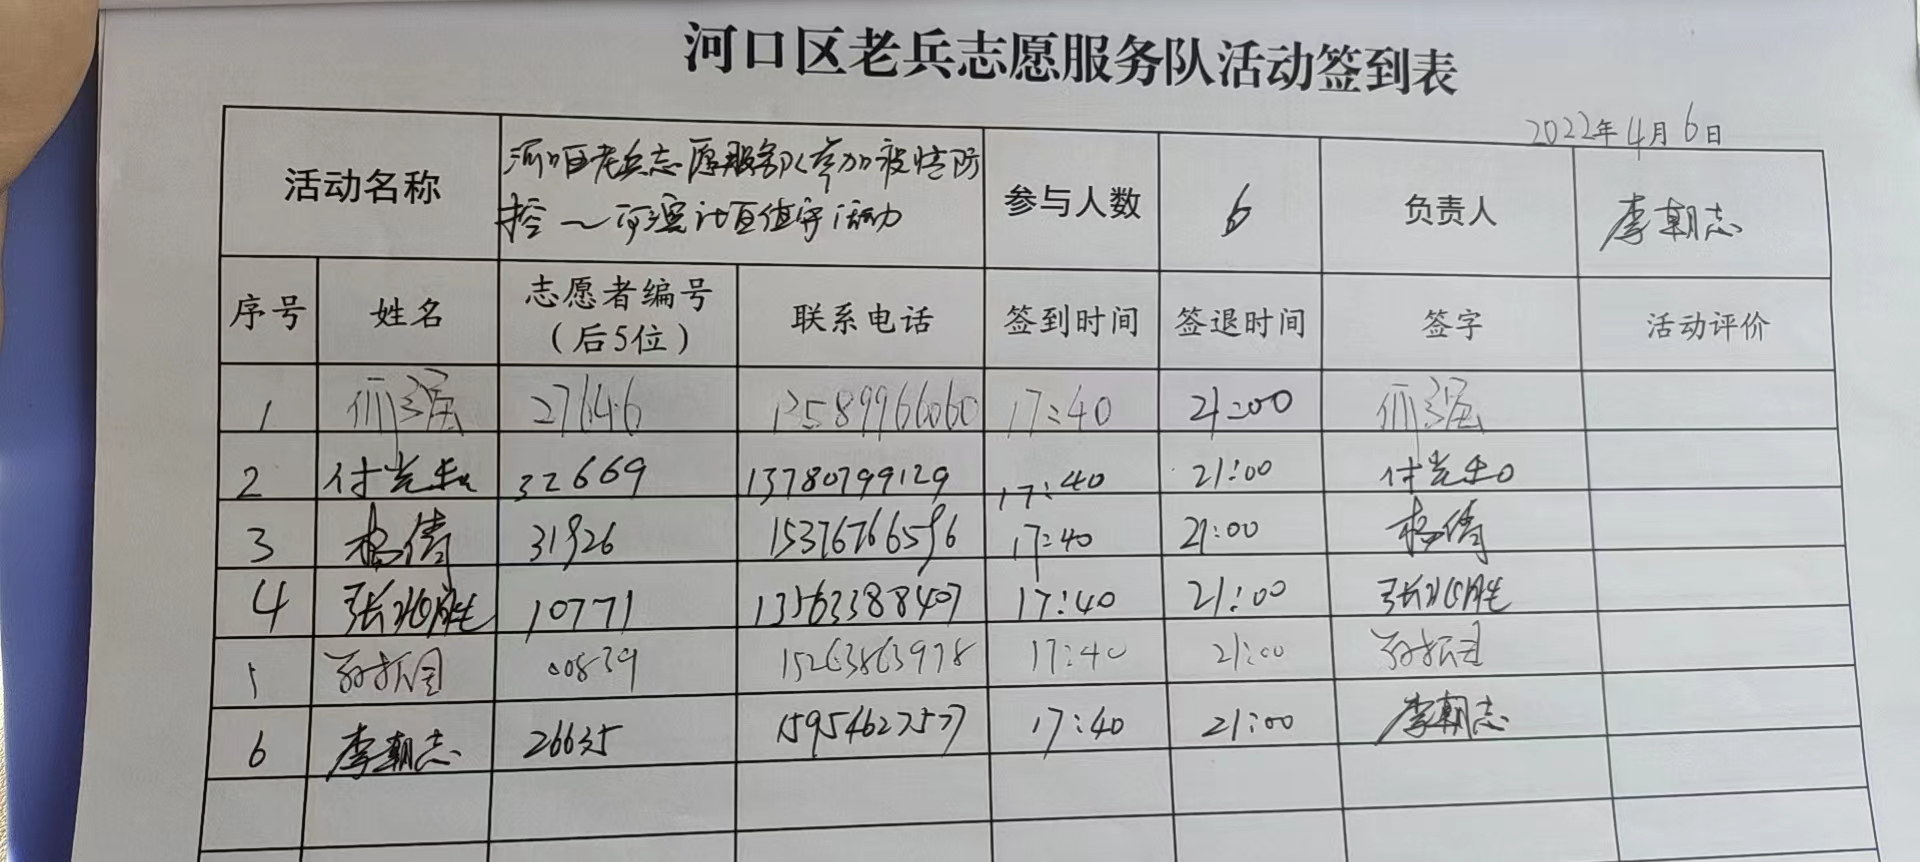 河口区老兵志愿服务队活动签到表
2022年4月6日
活动名称 河口区老兵志愿服务队参加疫情防 参与人数 6 负责人 李朝志
控 值守活动
序号 姓名 志愿者编号 联系电话 签到时间 签退时间 签字 活动评价
(后5位)
1 27646 17:40 21:00
2 付光 32669 13780799129 17:40 21:00 付光
3 杨倩 31926 15376766596 17:40 21:00 杨倩
4 张兆胜 10771 13563388407 17:40 21:00 张兆胜
5 孙振国 00839 15263863978 17:40 21:00 孙振国
6 李朝志 26635 15954627577 17:40 21:00 李朝志